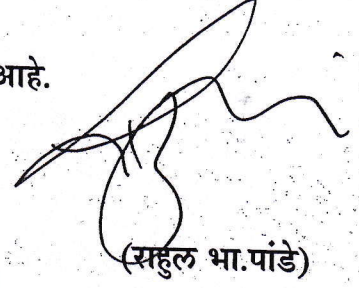 आहे.
(राहुल भा.पांडे)